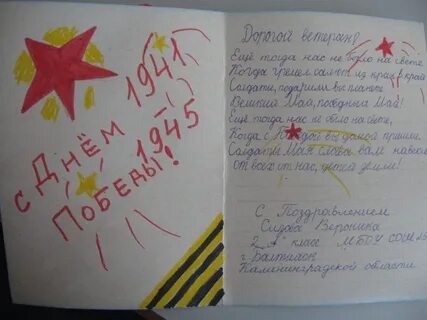 1941
1945
С ДНЁМ
ПОБЕДЫ!
Дорогой ветеран!
Ещё тогда нас не было на свете,
Когда гремел салют из края в край
Солдаты, подарили вы планете
Великий Май, победный Май!
Ещё тогда нас не было на свете,
Когда с Победой вы домой пришли.
Солдаты Мая, слава вам навеки
От всех от нас, от всей земли!
С Поздравлением
Вероника
2 "А" класс МБОУ СОШ
г. Балтийск
Калининградской области